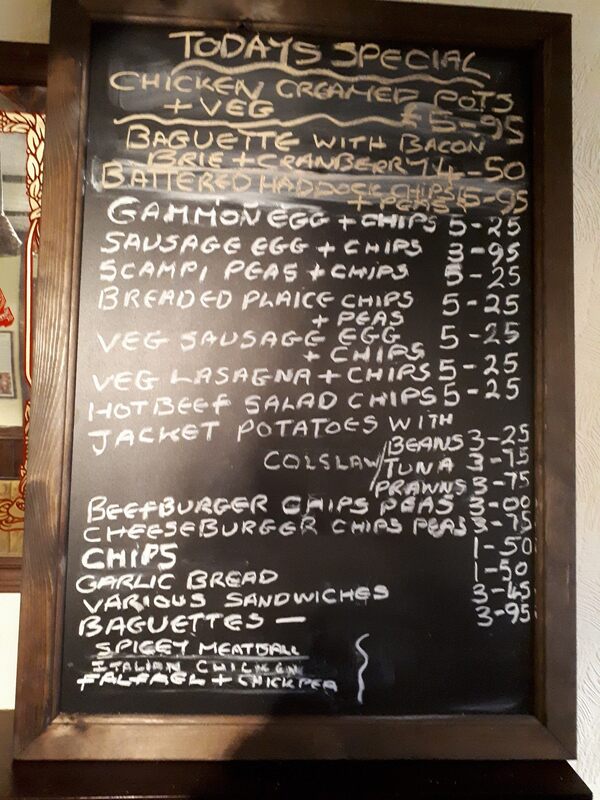 TODAYS SPECIAL
CHICKEN CREAMED POTS
+ VEG £5-95
BAGUETTE WITH BACON
BRIE + CRANBERRY 4-50
BATTERED HADDOCK CHIPS
+ PEAS 5-95
GAMMON EGG + CHIPS 5-25
SAUSAGE EGG + CHIPS 3-95
SCAMPI PEAS + CHIPS 5-25
BREADED PLAICE CHIPS 5-25
+ PEAS
VEG SAUSAGE EGG 5-25
+ CHIPS
VEG LASAGNA + CHIPS 5-25
HOT BEEF SALAD CHIPS 5-25
JACKET POTATOES WITH
BEANS 3-25
COLSLAW/TUNA 3-75
PRAWNS 3-75
BEEFBURGER CHIPS PEAS 3-00
CHEESEBURGER CHIPS PEAS 3-75
CHIPS 1-50
GARLIC BREAD 1-50
VARIOUS SANDWICHES 3-45
BAGUETTES — 3-95
SPICEY MEATBALL
ITALIAN CHICKEN
FALFAEL + CHICKPEA